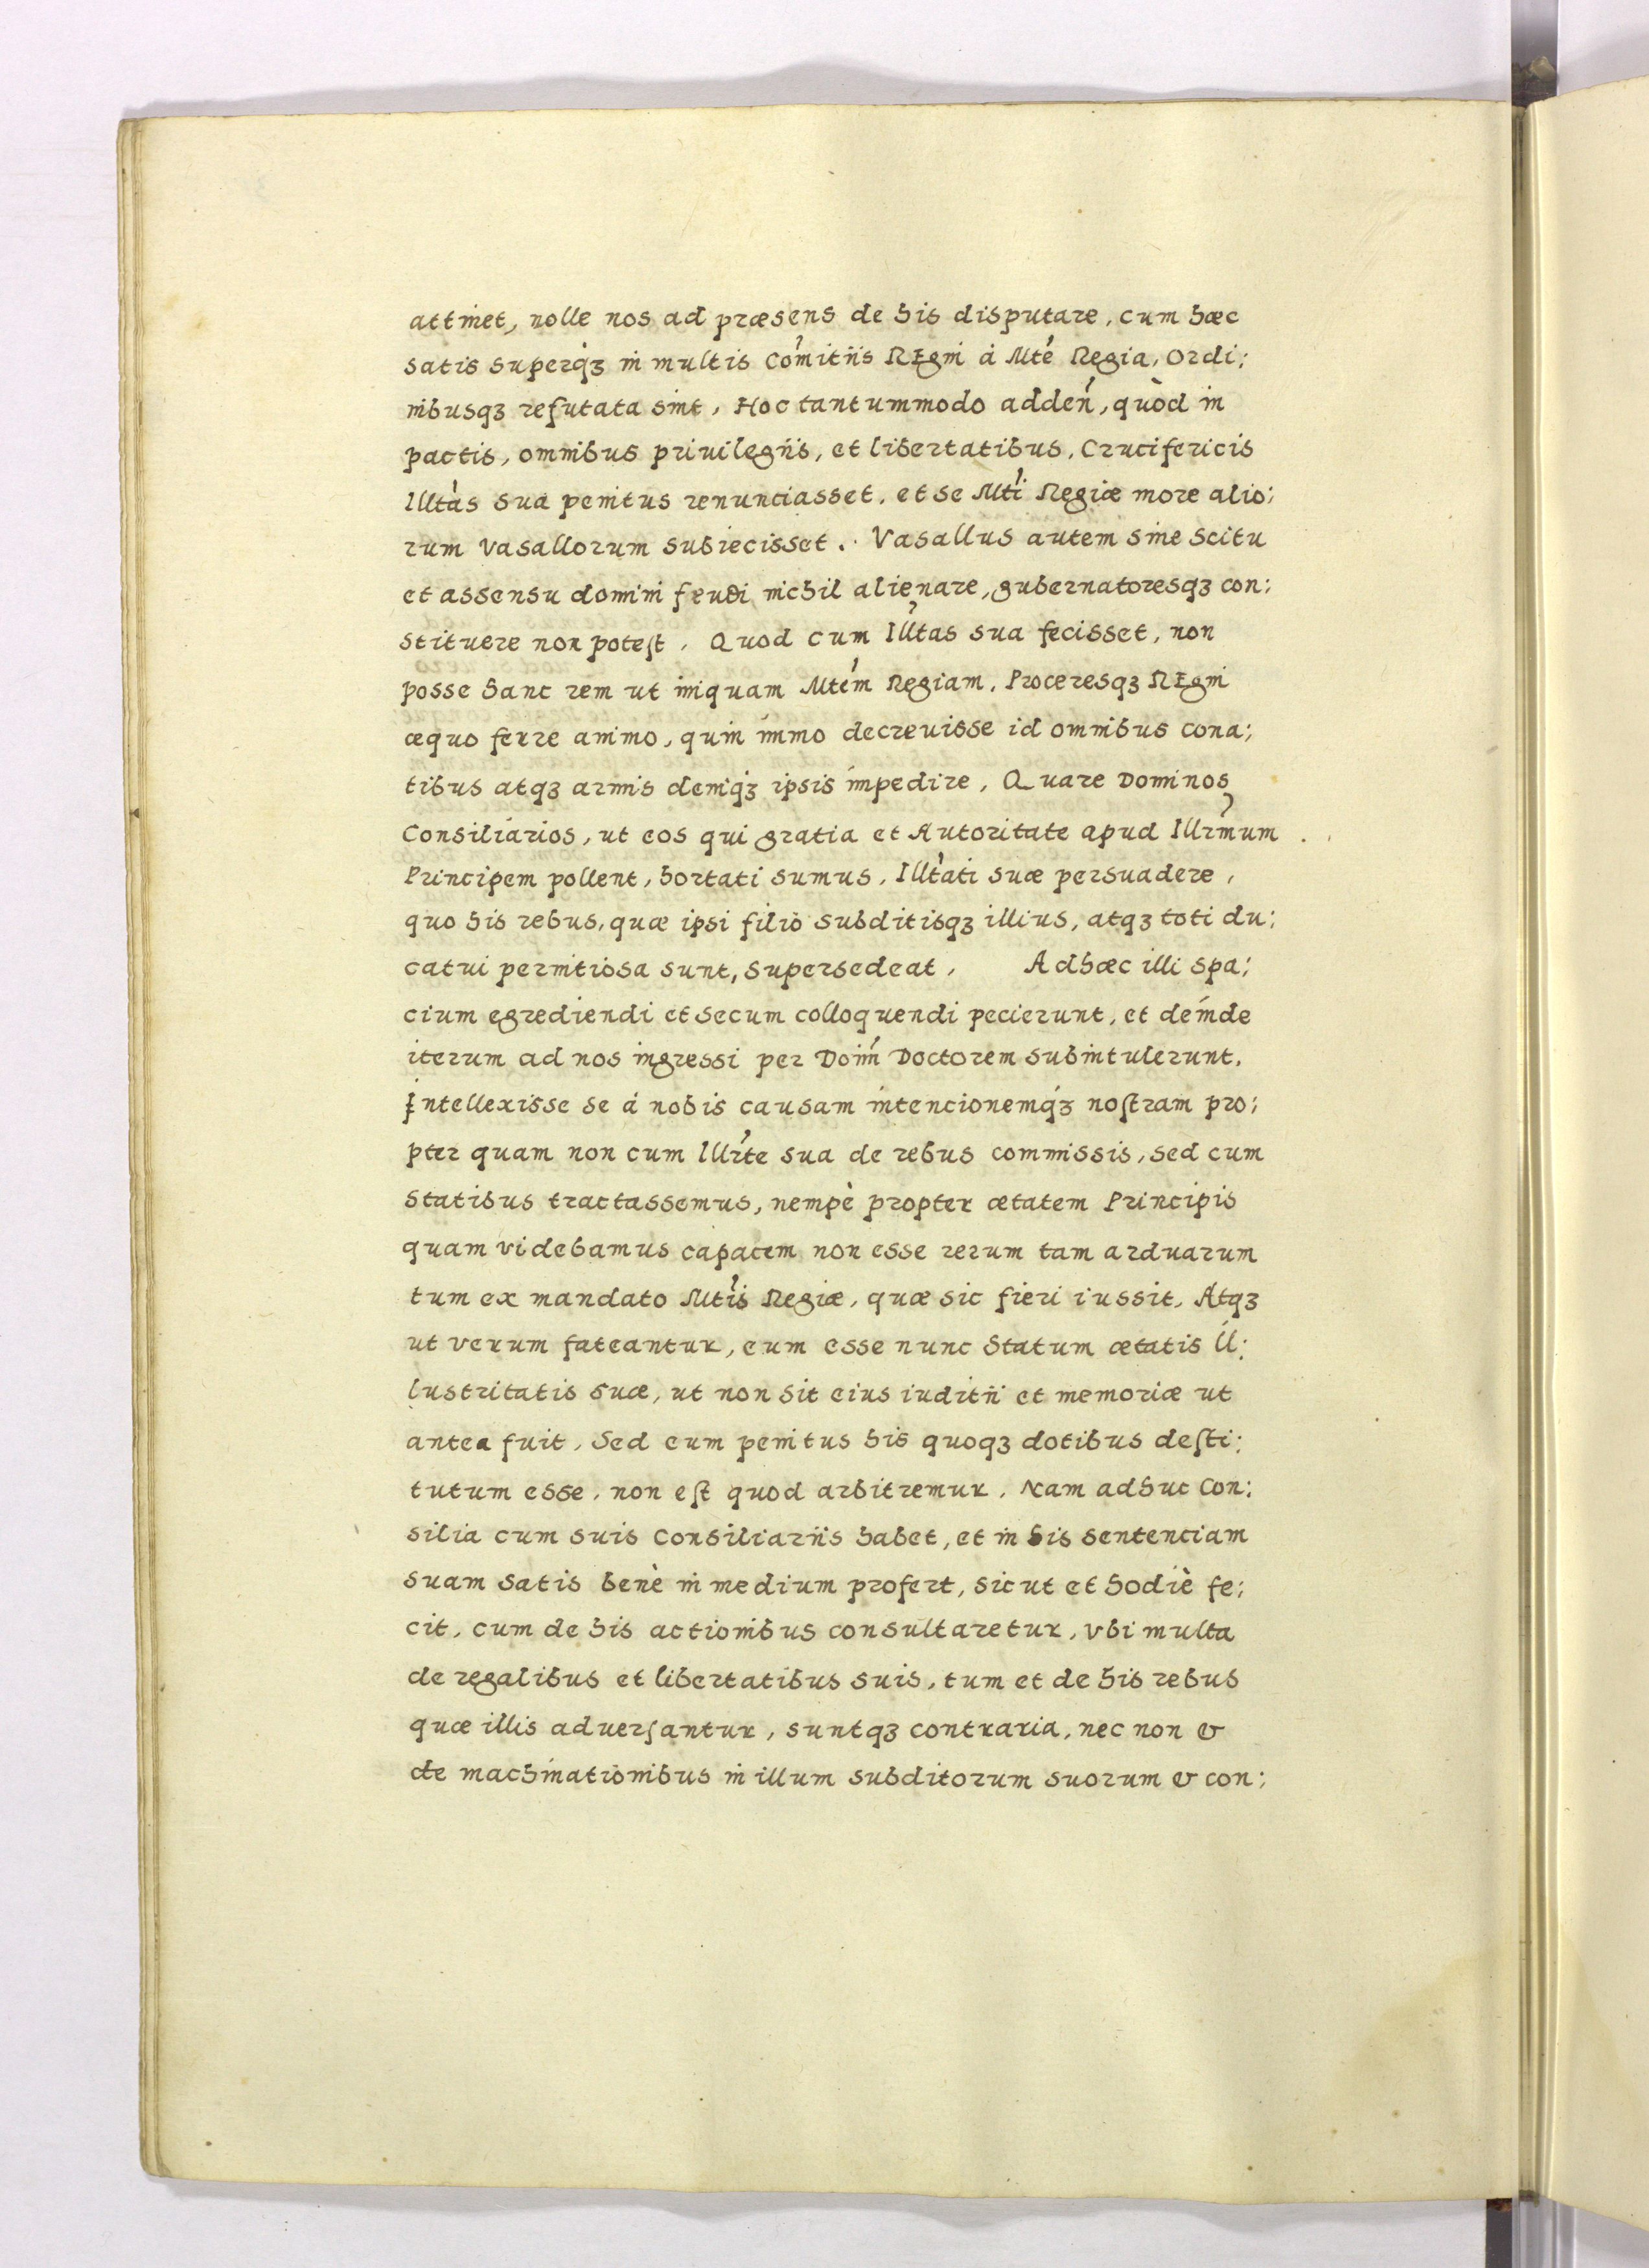 attinet, nolle nos ad præsens de his disputare, cum hæc
satis superq́ꝫ in multis Com̉itiis REgni à Mte̓ Regia, Ordi:
nibusqꝫ refutata sint, Hoc tantummodo adden̓, quòd in
pactis, omnibus priuilegiis, et libertatibus, Crucifericis
Illta̓s sua penitus renunciasset, et se Mti̓ Regiæ more alio:
rum Vasallorum subiecisset. Vasallus autem sine scitu
et assensu domini feudi nichil alienare, gubernatoresqꝫ con:
stituere non potest, Quod cum Illt̓as sua fecisset, non
posse hanc rem ut iniquam Mte̓m Regiam, Proceresqꝫ REgni
æquo ferre animo, quin immo decreuisse id omnibus cona:
tibus atqꝫ armis deniq́ꝫ ipsis impedire, Quare Dominos
Consiliarios, ut eos qui gratia et Autoritate apud Illrm̓um
Principem pollent, hortati sumus, Illt̓ati suæ persuadere,
quo his rebus, quæ ipsi filio subditisqꝫ illius, atqꝫ toti du:
catui pernitiosa sunt, supersedeat, Ad hæc illi spa:
cium egrediendi et secum colloquendi pecierunt, et deinde
iterum ad nos ingressi per Doim̓ Doctorem subintulerunt,
Intellexisse se á nobis causam intencionemq́ꝫ nostram pro:
pter quam non cum Illr̓te sua de rebus commissis, sed cum
Statibus tractassemus, nempè propter ætatem Principis
quam videbamus capacem non esse rerum tam arduarum
tum ex mandato Mti̓s Regiæ, quæ sic fieri iussit, Atqꝫ
ut verum fateantur, eum esse nunc Statum ætatis Il:
lustritatis suæ, ut non sit eius iuditii et memoriæ ut
antea fuit, Sed eum penitus his quoqꝫ dotibus desti:
tutum esse, non est quod arbitremur, Nam adhuc Con:
silia cum suis Consiliariis habet, et in his sentenciam
suam satis benè in medium profert, sicut et hodiè fe:
cit, cum de his actionibus consultaretur, vbi multa
de regalibus et libertatibus suis, tum et de his rebus
quæ illis aduersantur, suntqꝫ contraria, nec non &
de machinationibus in illum subditorum suorum & con: